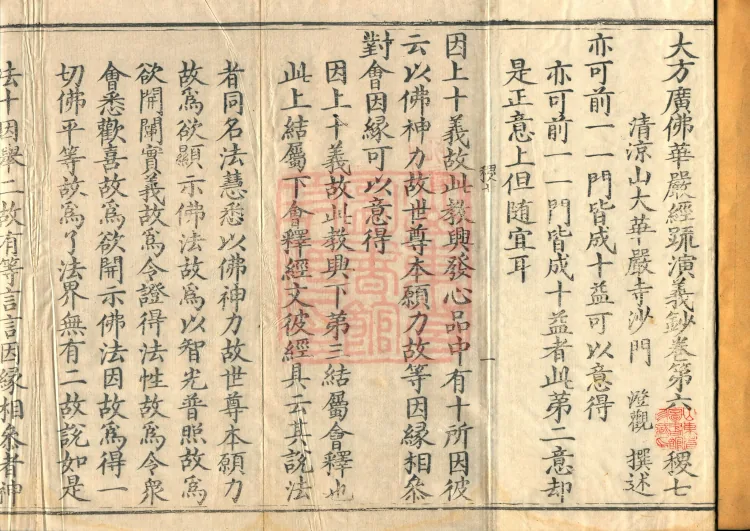 大方廣佛華嚴經疏演義鈔卷第六 稷七
清涼山大華嚴寺沙門 澄觀 撰述
亦可前一一門皆成十益可以意得
亦可前一一門皆成十益者此第二意却
是正意上但隨宜耳
因上十義故此教興發心品中有十所因彼
云以佛神力故世尊本願力故等因緣相叅
對會因緣可以意得
因上十義故此教興下第三結屬會釋也
此上結屬下會釋經文彼經具云其說法
者同名法慧悉以佛神力故世尊本願力
故爲欲顯示佛法故爲以智光普照故爲
欲開闡實義故爲令證得法性故爲令衆
會悉歡喜故爲欲開示佛法因故爲得一
切佛平等故爲了法界無有二故說如是
法十因舉二故有等言言因緣相叅者神